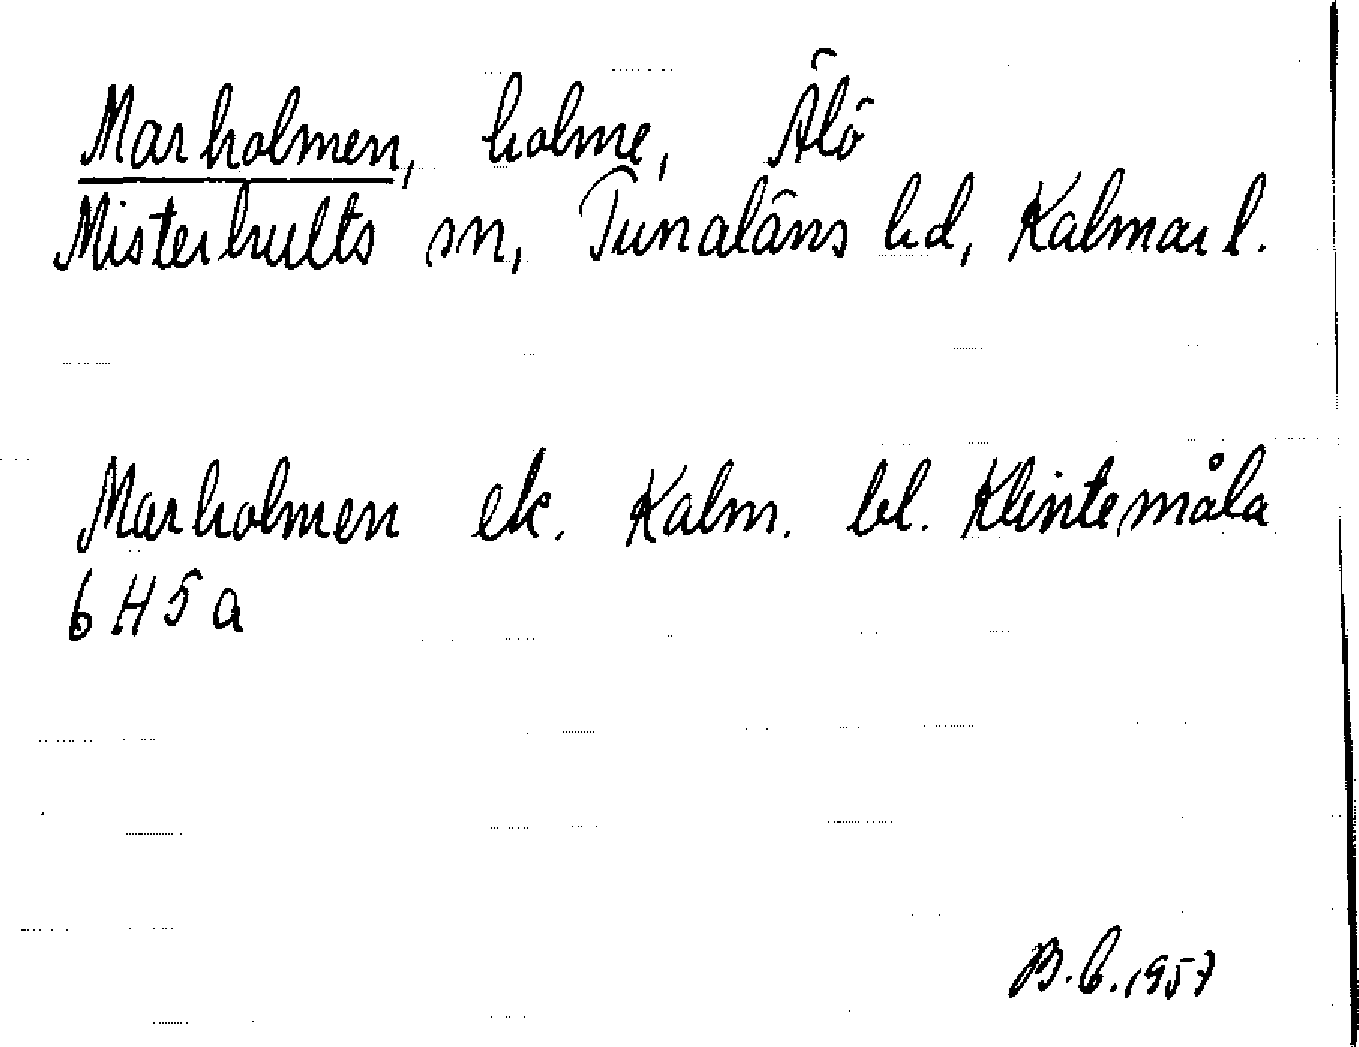 Marholmen, holme, Älö
Misterhults sn, Tunaläns hd, Kalmar l.
Marholmen ek. Kalm. bl. Klintemåla
6 H 5 a
B.C. 1957